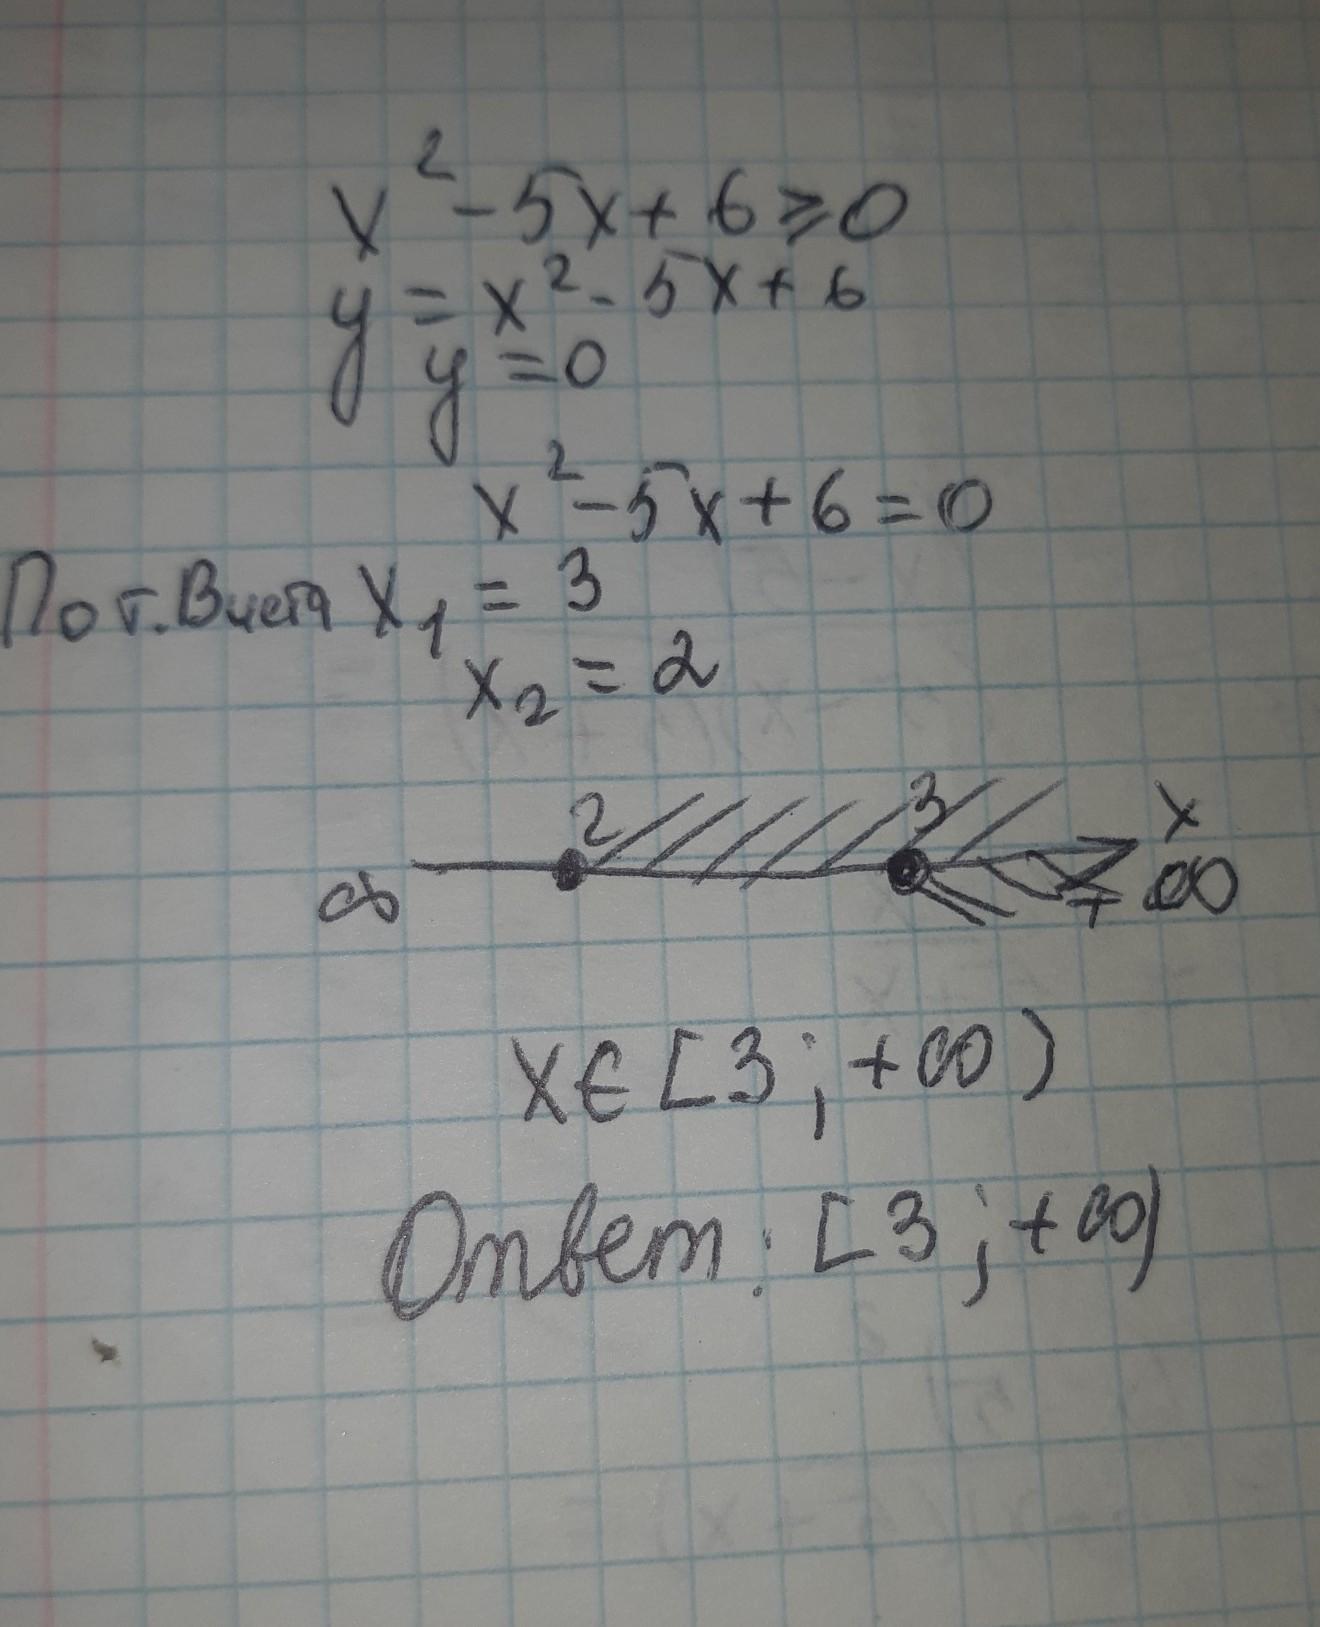 x² - 5x + 6 ≥ 0
y = x² - 5x + 6
y = 0
x² - 5x + 6 = 0
По т. Виета x₁ = 3
x₂ = 2
2 3 x
∞ + ∞
x ∈ [3 ; +∞)
Ответ: [3 ; +∞)